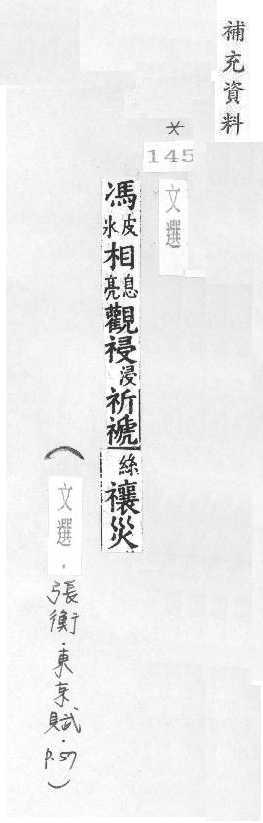 補充資料
* 145 文選
馮皮氷相息亮觀祲浸祈禠絲禳災
(文選.張衡.東京賦.p.57)